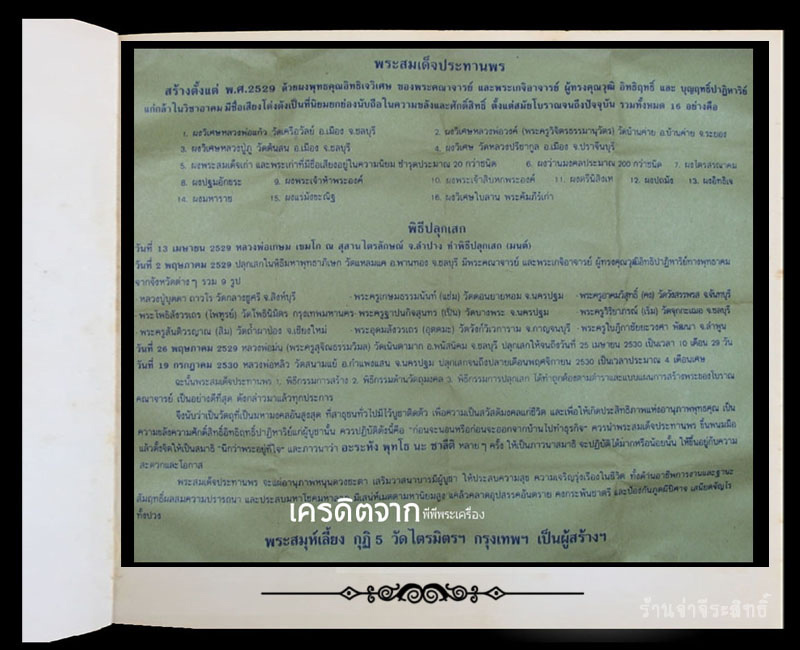 พระสมเด็จประทานพร
สร้างตั้งแต่ พ.ศ.2529 ด้วยผงพุทธคุณอิทธิเจวิเศษ ของพระคณาจารย์ และพระเกจิอาจารย์ ผู้ทรงคุณวุฒิ อิทธิฤทธิ์ และ บุญฤทธิ์ปาฏิหาริย์
แก่กล้าในวิชาอาคม มีชื่อเสียงโด่งดังเป็นที่นิยมยกย่องนับถือในความขลังและศักดิ์สิทธิ์ ตั้งแต่สมัยโบราณจนถึงปัจจุบัน รวมทั้งหมด 16 อย่างคือ
1. ผงวิเศษหลวงพ่อแก้ว วัดเครือวัลย์ อ.เมือง จ.ชลบุรี 2. ผงวิเศษหลวงพ่อวงศ์ (พระครูวิจิตรธรรมานุวัตร) วัดบ้านค่าย อ.บ้านค่าย จ.ระยอง
3. ผงวิเศษหลวงปู่ภู วัดต้นสน อ.เมือง จ.ชลบุรี 4. ผงวิเศษ วัดหลวงปรีชากูล อ.เมือง จ.ปราจีนบุรี
5. ผงพระสมเด็จเก่า และพระเก่าที่มีชื่อเสียงอยู่ในความนิยม ชำรุดประมาณ 20 กว่าชนิด 6. ผงว่านมงคลประมาณ 200 กว่าชนิด 7. ผงไตรสรณาคม
8. ผงปฐมอักขระ 9. ผงพระเจ้าห้าพระองค์ 10. ผงพระเจ้าสิบหกพระองค์ 11. ผงตรีนิสิงเห 12. ผงปถมัง 13. ผงอิทธิเจ
14. ผงมหาราช 15. ผงแร่มังชะณิฐ 16. ผงวิเศษใบลาน พระคัมภีร์เก่า
พิธีปลุกเสก
วันที่ 13 เมษายน 2529 หลวงพ่อเกษม เขมโก ณ สุสานไตรลักษณ์ จ.ลำปาง ทำพิธีปลุกเสก (มนต์)
วันที่ 2 พฤษภาคม 2529 ปลุกเสกในพิธีมหาพุทธาภิเษก วัดแหลมแค อ.พานทอง จ.ชลบุรี มีพระคณาจารย์ และพระเกจิอาจารย์ ผู้ทรงคุณวุฒิอิทธิปาฏิหาริย์ทางพุทธาคม
จากจังหวัดต่าง ๆ รวม 9 รูป
· หลวงปู่บุดดา ถาวโร วัดกลางชูศรี จ.สิงห์บุรี · พระครูเกษมธรรมนันท์ (แช่ม) วัดดอนยายหอม จ.นครปฐม · พระครูอาคมวิสุทธิ์ (คง) วัดวังสรรพรส จ.จันทบุรี
· พระโพธิสังวรเถร (ไพฑูรย์) วัดโพธินิมิตร กรุงเทพมหานคร · พระครูฐาปนกิจสุนทร (เปิ่น) วัดบางพระ จ.นครปฐม · พระครูวิริยาภรณ์ (เริ่ม) วัดจุกกะเฌอ จ.ชลบุรี
· พระครูสันติวรญาณ (สิม) วัดถ้ำผาปล่อง จ.เชียงใหม่ · พระอุดมสังวรเถร (อุตตมะ) วัดวังก์วิเวการาม จ.กาญจนบุรี · พระครูใบฎีกาชัยยะวงศา พัฒนา จ.ลำพูน
วันที่ 26 พฤษภาคม 2529 หลวงพ่อม่น (พระครูสุจิณธรรมวิมล) วัดเนินตามาก อ.พนัสนิคม จ.ชลบุรี ปลุกเสกให้จนถึงวันที่ 25 เมษายน 2530 เป็นเวลา 10 เดือน 29 วัน
วันที่ 19 กรกฎาคม 2530 หลวงพ่อหลิว วัดสนามแย้ อ.กำแพงแสน จ.นครปฐม ปลุกเสกจนถึงปลายเดือนพฤศจิกายน 2530 เป็นเวลาประมาณ 4 เดือนเศษ
ฉะนั้นพระสมเด็จประทานพร 1. พิธีกรรมการสร้าง 2. พิธีกรรมด้านวัตถุมงคล 3. พิธีกรรมการปลุกเสก ได้ทำถูกต้องตามตำราและแบบแผนการสร้างพระของโบราณ
คณาจารย์ เป็นอย่างดีที่สุด ดังกล่าวมาแล้วทุกประการ
จึงนับว่าเป็นวัตถุที่เป็นมหามงคลอันสูงสุด ที่สาธุชนทั่วไปมีไว้บูชาติดตัว เพื่อความเป็นสวัสดิมงคลแก่ชีวิต และเพื่อให้เกิดประสิทธิภาพแห่งอานุภาพพุทธคุณ เป็น
ความขลังความศักดิ์สิทธิ์อิทธิฤทธิ์ปาฏิหาริย์แก่ผู้บูชานั้น ควรปฏิบัติดังนี้คือ "ก่อนจะนอนหรือก่อนจะออกจากบ้านไปทำธุรกิจ" ควรนำพระสมเด็จประทานพร ขึ้นพนมมือ
แล้วตั้งจิตให้เป็นสมาธิ "นึกว่าพระอยู่ที่ใจ" และภาวนาว่า อะระหัง พุทโธ นะ ชาลีติ หลาย ๆ ครั้ง ให้เป็นภาวนาสมาธิ จะปฏิบัติได้มากหรือน้อยนั้น ให้ขึ้นอยู่กับความ
สะดวกและโอกาส
พระสมเด็จประทานพร จะแผ่อานุภาพหนุนดวงชะตา เสริมวาสนาบารมีผู้บูชา ให้ประสบความสุข ความเจริญรุ่งเรืองในชีวิต ทั้งด้านอาชีพการงานและฐานะ
สัมฤทธิ์ผลสมความปรารถนา และประสบมหาโชคมหาลาภ มีเสน่ห์เมตตามหานิยมสูง แคล้วคลาดอุปสรรคอันตราย คงกระพันชาตรี และป้องกันภูตผีปีศาจ เสนียดจัญไร
ทั้งปวง
เครดิตจาก พีพีพระเครื่อง
พระสมุห์เลี้ยง กุฏิ 5 วัดไตรมิตรฯ กรุงเทพฯ เป็นผู้สร้างฯ
ร้านจ่าจีระสิทธิ์